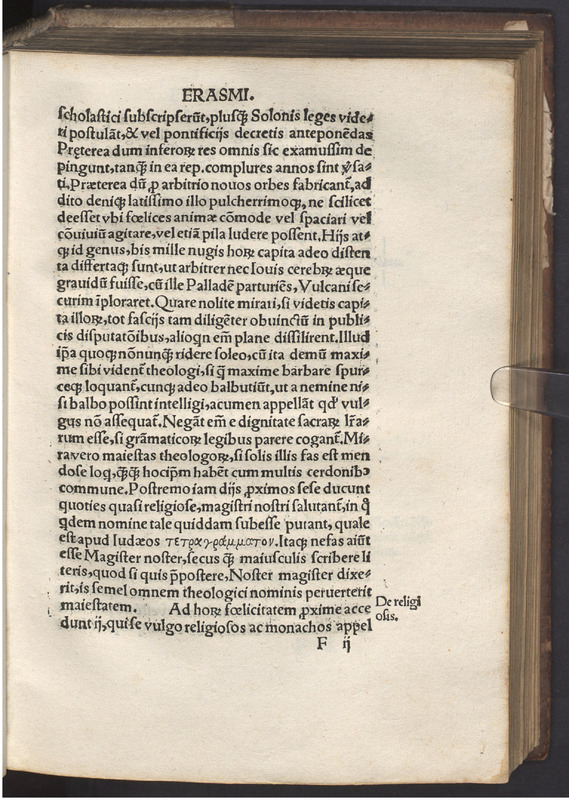 ERASMI.
scholastici subscripserūt, plusꝗ̃ Solonis leges vide⸗
ri postulãt, & vel pontificijs decretis anteponēdas
Pręterea dum inferoꝝ res omnis sic examussim de
pingunt, tanꝗ̃ in ea rep. complures annos sint ꝟsa⸗
ti. Præterea dũ, ꝓ arbitrio nouos orbes fabricant̃, ad
dito deniꝗ latissimo illo pulcherrimoꝗ, ne scilicet
deesset vbi fœlices animæ cōmode vel spaciari vel
cōuiuiũ agitare, vel etiã pila ludere possent. Hijs at⸗
ꝗ id genus, bis mille nugis horꝝ capita adeo disten
ta differtaꝗ sunt, ut arbitrer nec Iouis cerebrꝝ æque
grauidũ fuisse, cũ ille Palladē parturiēs, Vulcani se⸗
curim īploraret. Quare nolite mirari, si videtis capi
ta illoꝝ, tot fascijs tam diligēter obuinctũ in publi⸗
cis disputatōibus, alioqn em̄ plane dissilirent. Illud
ip̄a quoꝗ nōnunꝗ̃ ridere soleo, cũ ita demũ maxi⸗
me sibi videnť theologi, si q̄ maxime barbare spur⸗
ceꝗ loquant̃, cunꝗ adeo balbutiũt, ut a nemine ni⸗
si balbo possint intelligi, acumen appellãt qd' vul⸗
gus nō assequat̃. Negãt em̄ e dignitate sacraꝝ lr̄a⸗
rum esse, si grãmaticoꝝ legibus parere cogant̃. Mi⸗
ra vero maiestas theologoꝝ, si solis illis fas est men
dose loq, ꝗ̃ꝗ̃ hocip̄m habēt cum multis cerdonibꝰ
commune. Postremo iam dijs ꝓximos sese ducunt
quoties quasi religiose, magistri nostri salutant̃, in ꝗ̊
ꝗdem nomine tale quiddam subesse putant, quale
est apud Iudæos τετραγράμματον. Itaꝗ nefas aiũt
esse Magister noster, secus ꝗ̃ maiusculis scribere li
teris, quod si quis p̄postere, Noster magister dixe⸗
rit, is semel omnem theologici nominis peruerterit
maiestatem. Ad horꝝ fœlicitatem ꝓxime acce
dunt ij, qui se vulgo religiosos ac monachos appel
De religi
osis.
F ij